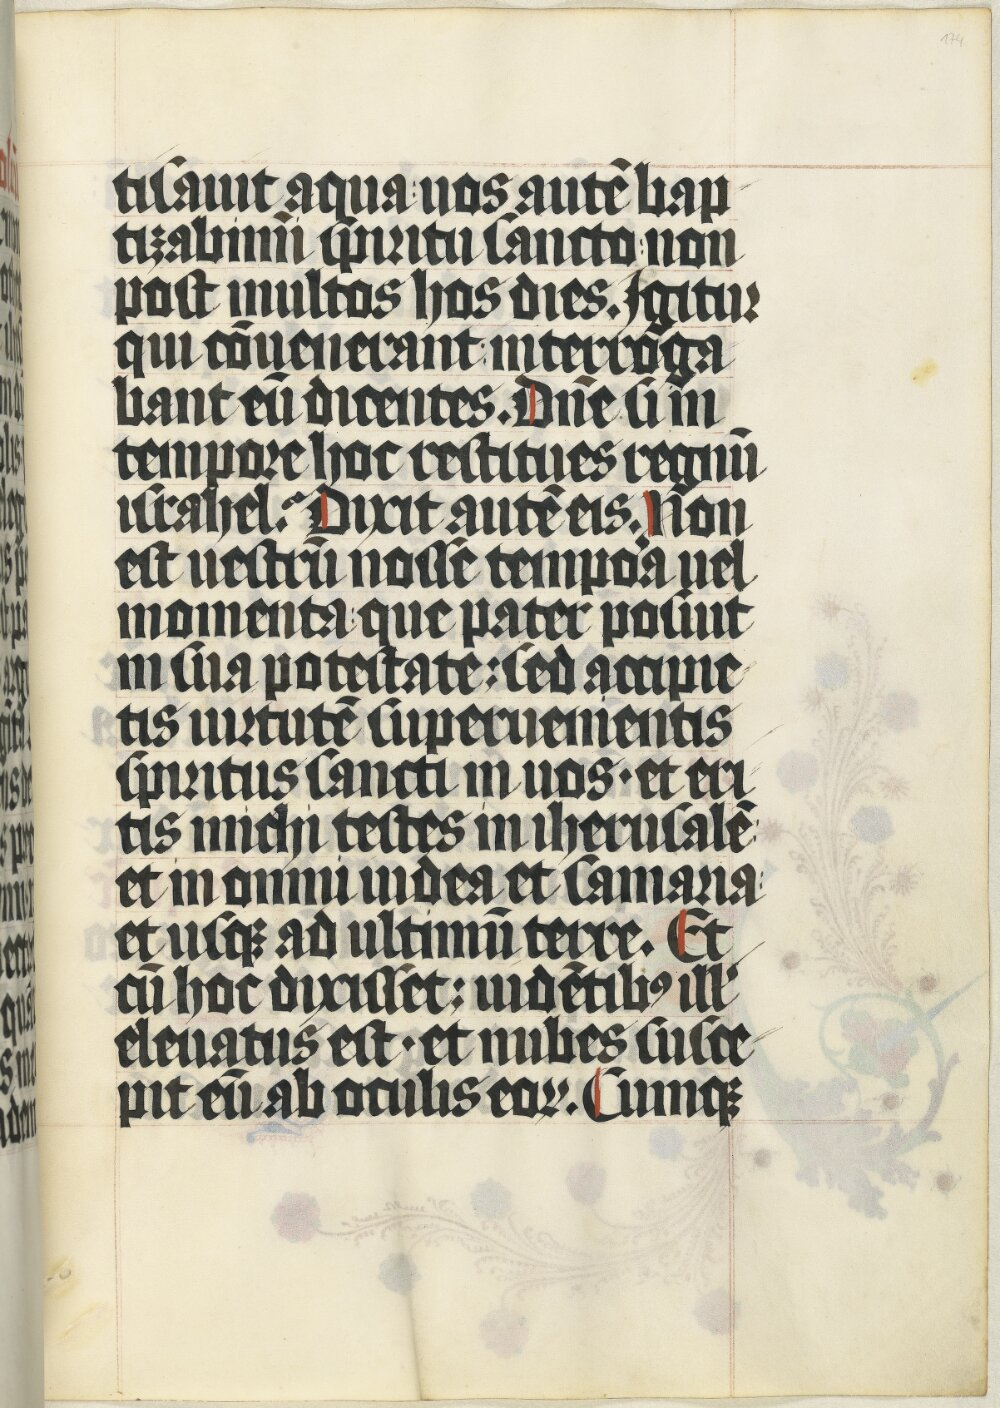 174
tisauit aqua: uos autē bap
tizabimī spiritu sancto: non
post multos hos dies. Igitur
qui cōuenerant: interroga
bant eū dicentes. Dn̄e si in
tempore hoc restitues regnū
israhel? Dixit autē eis. Non
est uestrū nosse tempora uel
momenta: que pater posuit
in sua potestate: sed accipie
tis uirtutē superuenientis
spiritus sancti in uos· et eri
tis michi testes in iherusalē:
et in omni iudea et samaria:
et usqꝫ ad ultimū terre. Et
cū hoc dixisset: uidētibꝰ ill'
eleuatus est· et nubes susce
pit eū ab oculis eoꝝ. Cumqꝫ